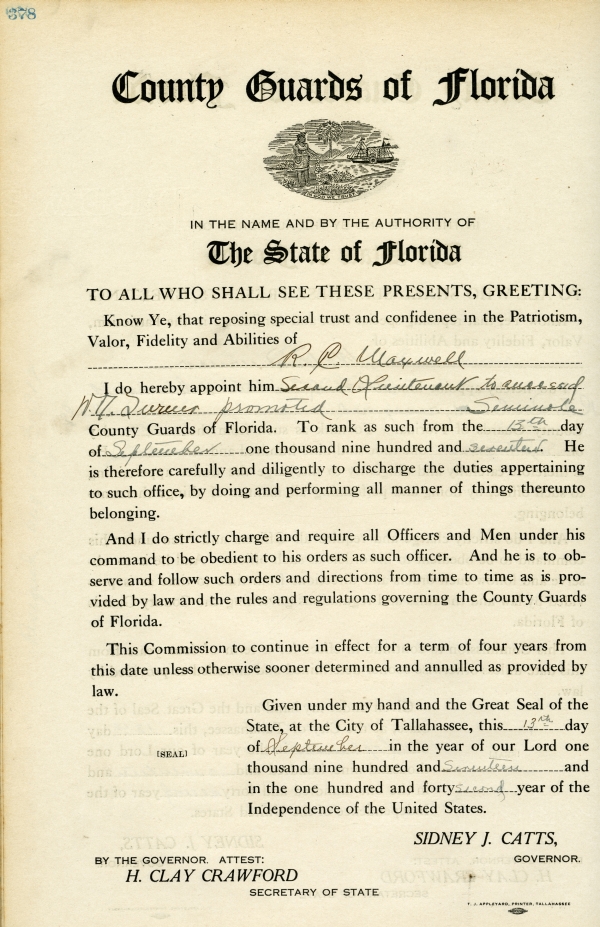 378
County Guards of Florida
IN GOD WE TRUST
IN THE NAME AND BY THE AUTHORITY OF
The State of Florida
TO ALL WHO SHALL SEE THESE PRESENTS, GREETING:
Know Ye, that reposing special trust and confidence in the Patriotism,
Valor, Fidelity and Abilities of
R. C. Maxwell
I do hereby appoint him Second Lieutenant to succeed
Turner promoted Seminole
County Guards of Florida. To rank as such from the 13th day
of September one thousand nine hundred and seventeen. He
is therefore carefully and diligently to discharge the duties appertaining
to such office, by doing and performing all manner of things thereunto
belonging.
And I do strictly charge and require all Officers and Men under his
command to be obedient to his orders as such officer. And he is to ob-
serve and follow such orders and directions from time to time as is pro-
vided by law and the rules and regulations governing the County Guards
of Florida.
This Commission to continue in effect for a term of four years from
this date unless otherwise sooner determined and annulled as provided by
law.
Given under my hand and the Great Seal of the
State, at the City of Tallahassee, this 13th day
of September in the year of our Lord one
[SEAL]
thousand nine hundred and Seventeen and
in the one hundred and forty second year of the
Independence of the United States.
SIDNEY J. CATTS,
GOVERNOR.
BY THE GOVERNOR. ATTEST:
H. CLAY CRAWFORD
SECRETARY OF STATE
T. J. APPLEYARD, PRINTER, TALLAHASSEE